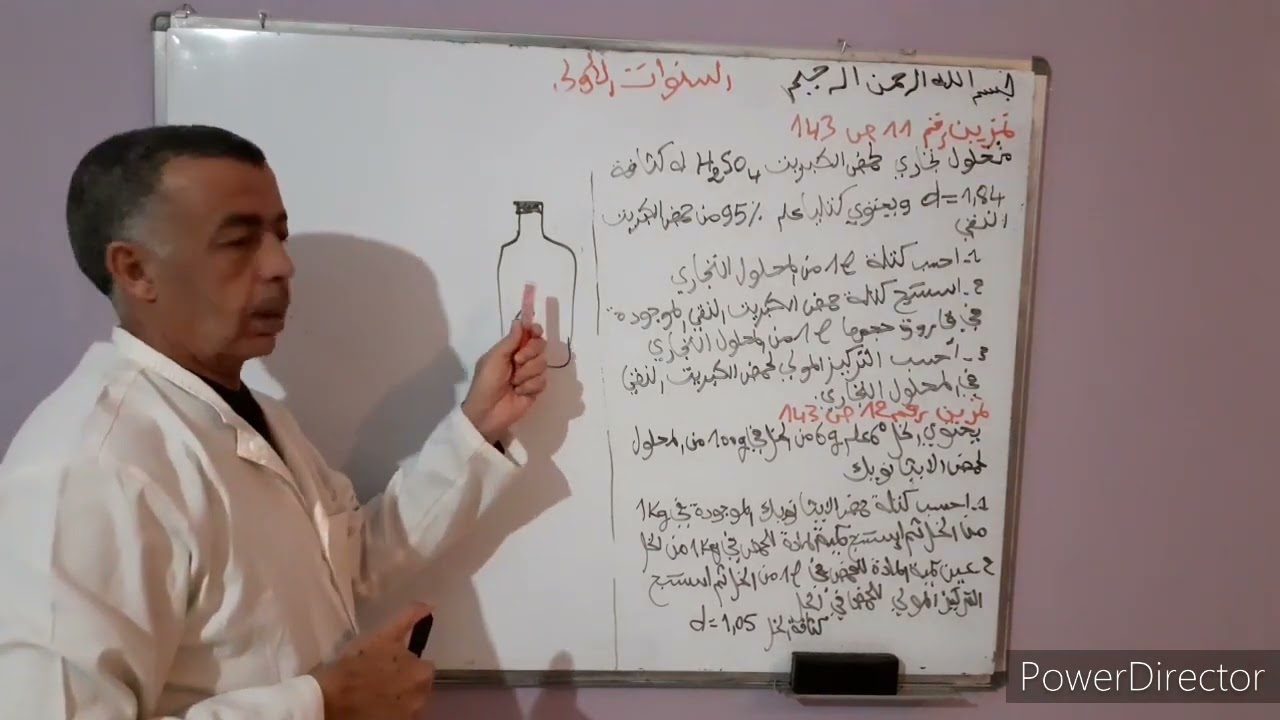 بسم الله الرحمن الرحيم السنوات الأولى
تمرين رقم 11 ص 143
محلول تجاري لحمض الكبريت H₂SO₄ له كثافة
d=1,84 ويحتوي كتليا على 95% من حمض الكبريت
النقي
1- احسب كتلة 1l من المحلول التجاري
2- استنتج كتلة حمض الكبريت النقي الموجودة
في قارورة حجمها 1l من المحلول التجاري
3- احسب التركيز المولي لحمض الكبريت النقي
في المحلول التجاري.
تمرين رقم 12 ص 143
يحتوي الخل 6° على 6g من الخل في 100g من المحلول
لحمض الايثانويك
1- احسب كتلة حمض الايثانويك الموجودة في 1Kg
من الخل ثم استنتج كمية المادة للحمض في 1Kg من الخل
2 عين كمية المادة للحمض في 1l من الخل ثم استنتج
التركيز المولي للحمض في الخل
كثافة الخل d=1,05
PowerDirector